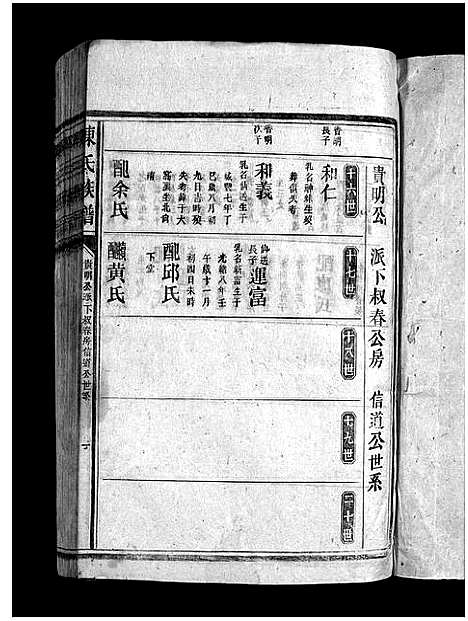 貴明公 派下叔春公房 信道公世系
十六世
貴明
長子
和仁
乳名神妹生歿
葬俱失考
貴明
次子
和義
乳名信送生于
咸豐七年丁
巳歲八月初
九日吉時歿
失考葬于大
配余氏
十七世
信送
長子
運富
乳名新富生于
光緒八年壬
午歲十一月
初四日未時
配邱氏
下堂
黃氏
十八世
十九世
二十世
陳氏族譜
貴明公派下叔春房信道公世系